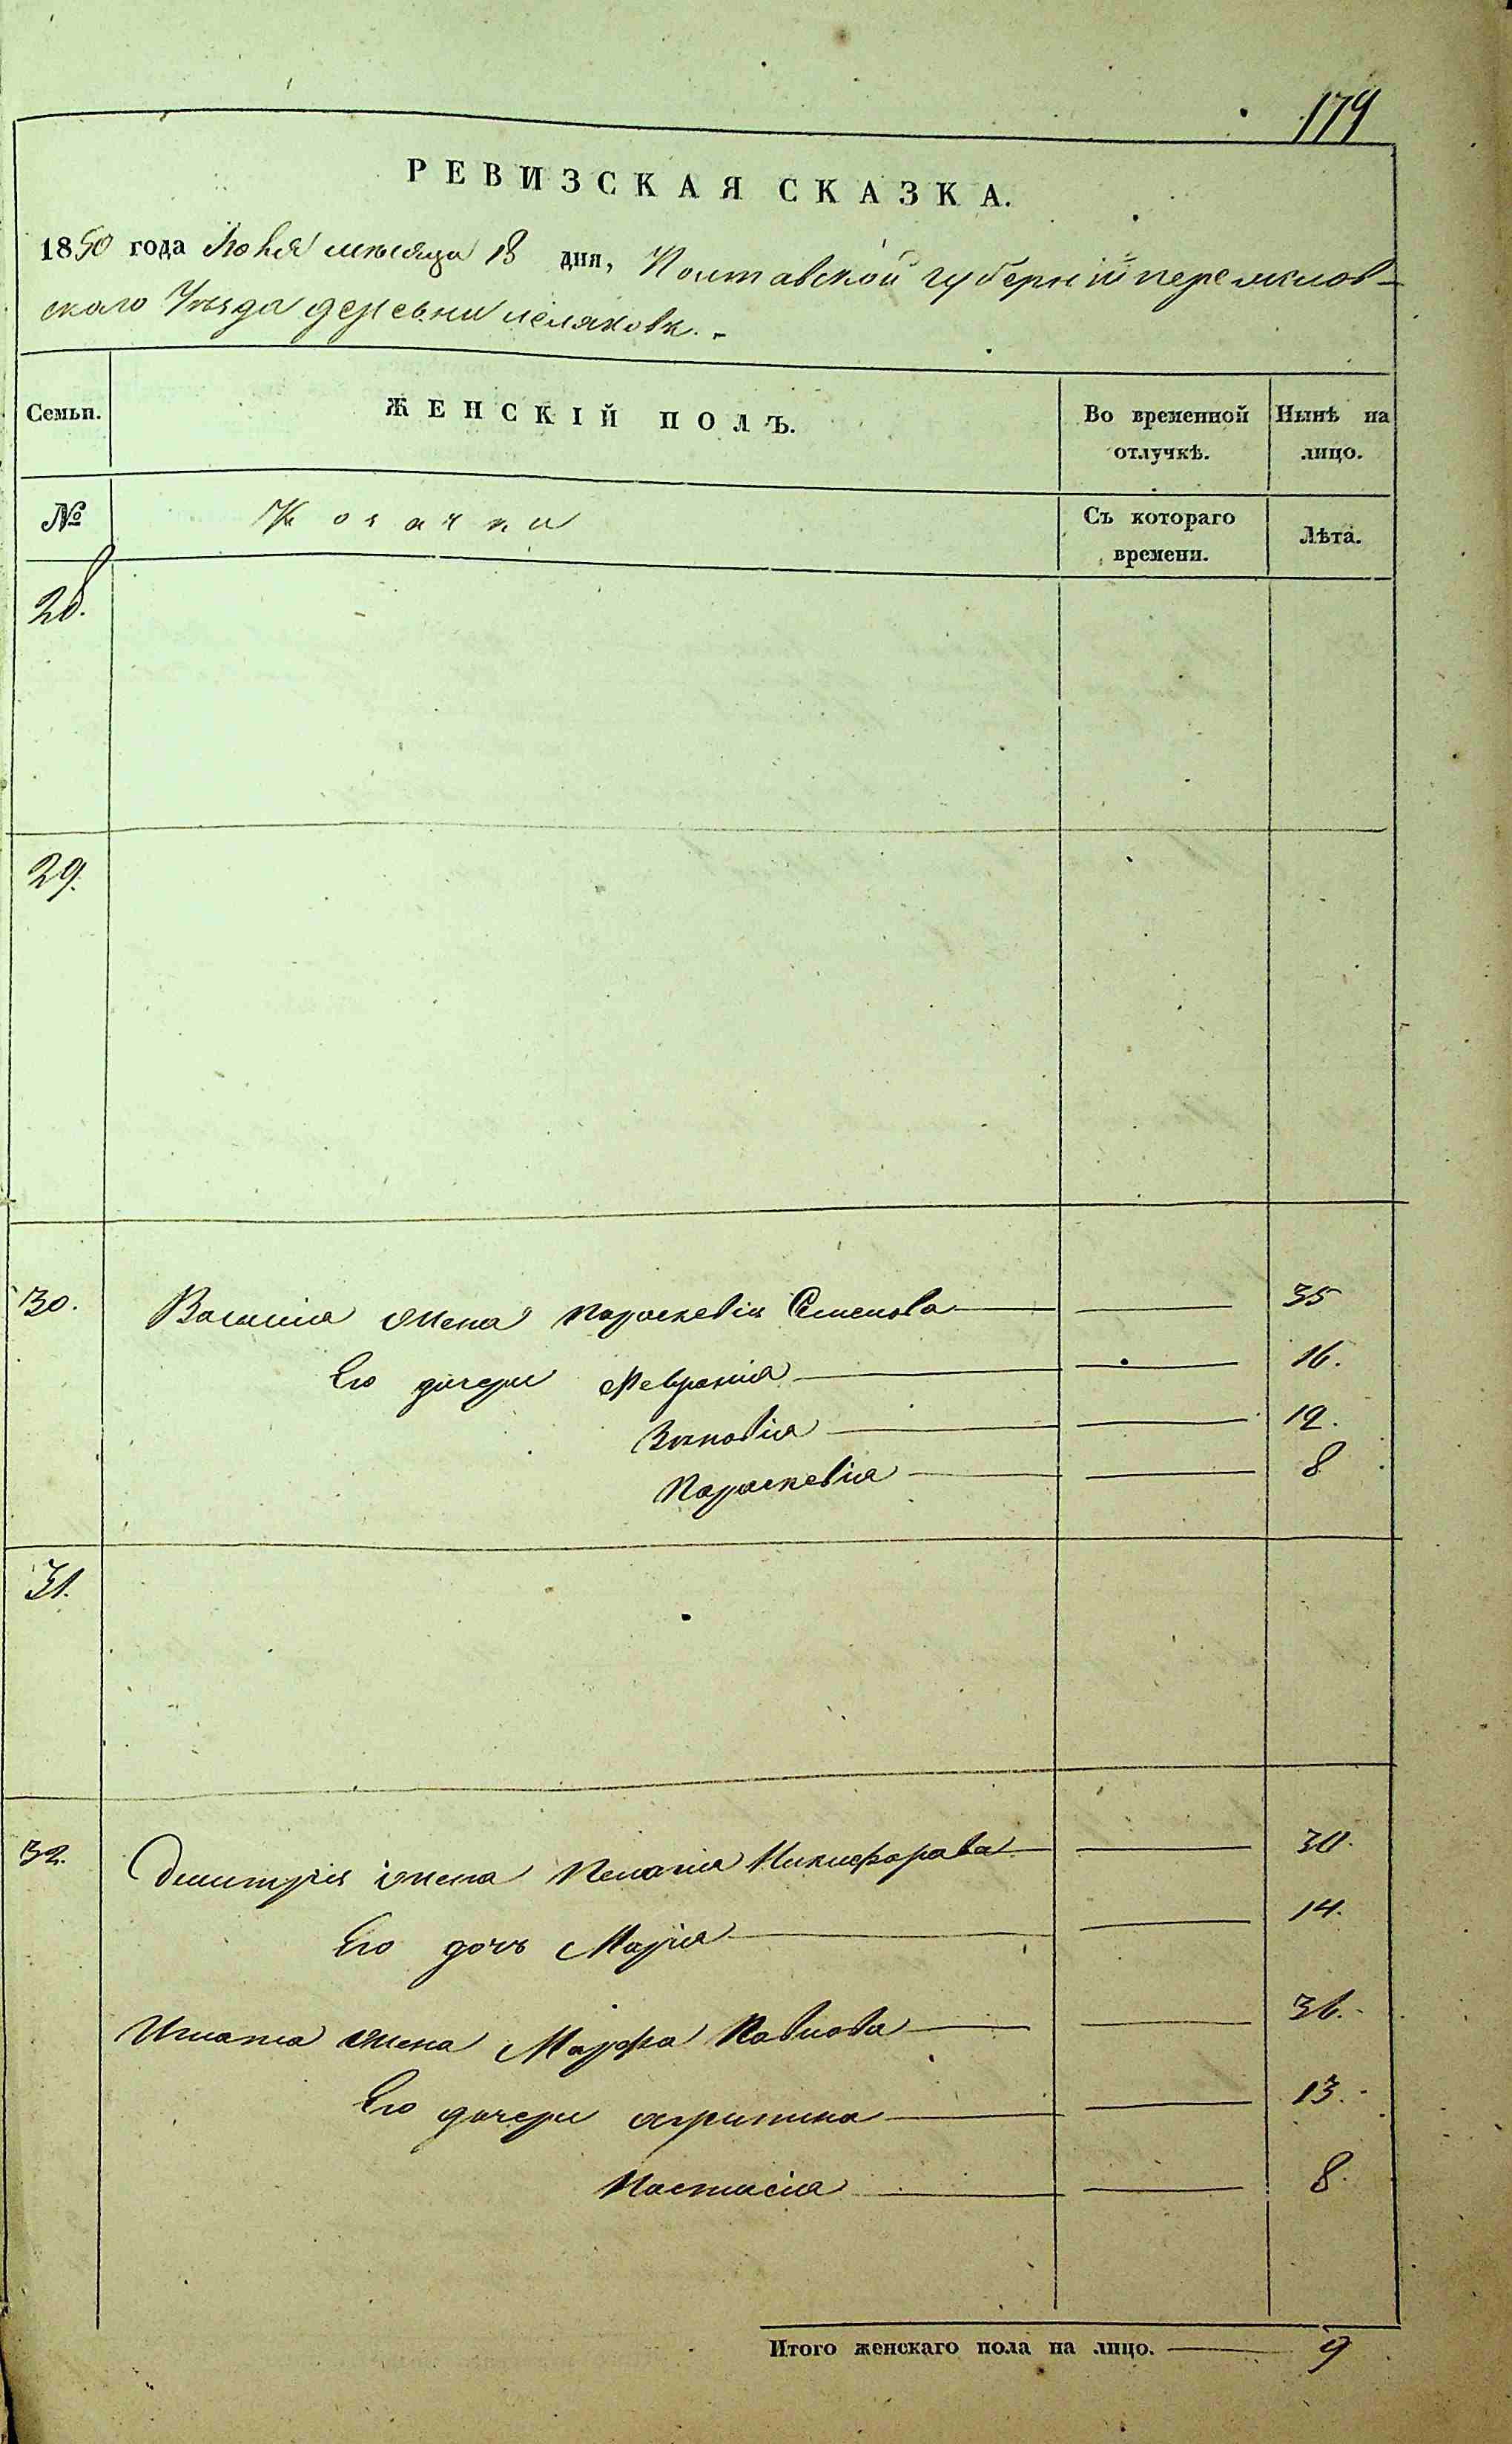 179
РЕВИЗСКАЯ СКАЗКА.
1850 года Іюня мѣсяца 18 дня, Полтавской губерніи переяслов-
скаго Уѣзда деревни
Семьи. ЖЕНСКІЙ ПОЛЪ. Во временной отлучкѣ. Нынѣ на лицо.
№ Козачки Съ котораго времени. Лѣта.
28.
29.
30. Василія жена Параскевія Семенова — — 35
Его дочери Февронія — — 16.
Зиновія — — 12.
Параскевія — — 8
31.
32. Дмитрія жена Пелагія Никифорова — — 30.
Его дочь Марія — — 14.
Игната жена Марфа Павлова — — 36.
Его дочери агрипина — — 13.
Настасія — — 8.
Итого женскаго пола на лицо. — 9